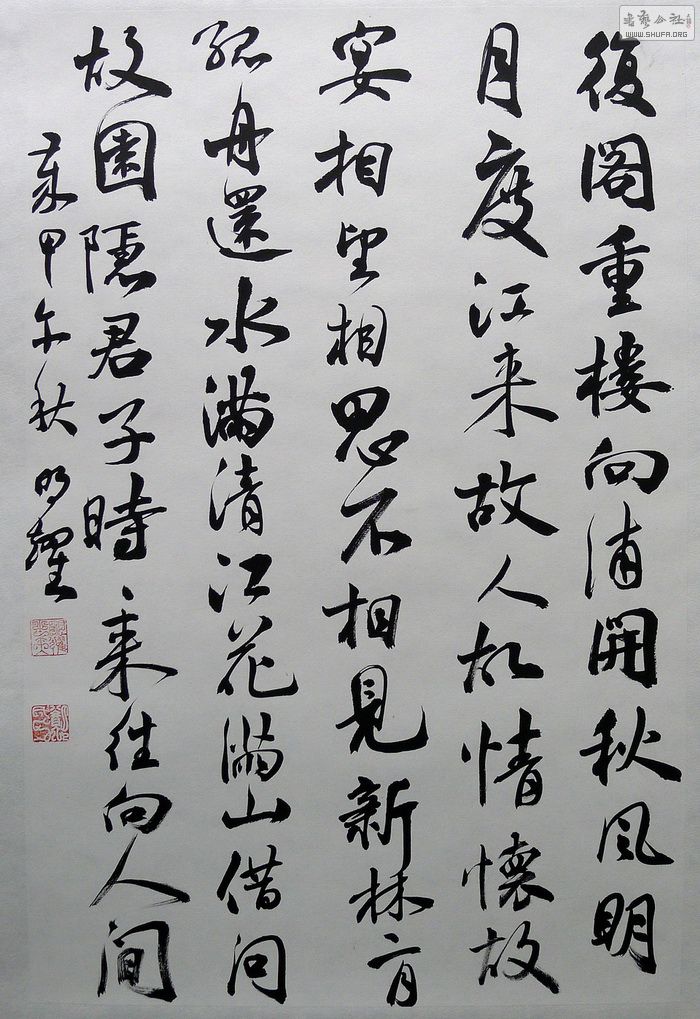 復閣重樓向浦開秋風明
月度江来故人故情懷故
宴相望相思不相見新林二月
孤舟還水滿清江花滿山借問
故園隱君子時来往向人間
歲甲午秋明耀
書藝公社
WWW.SHUFA.ORG